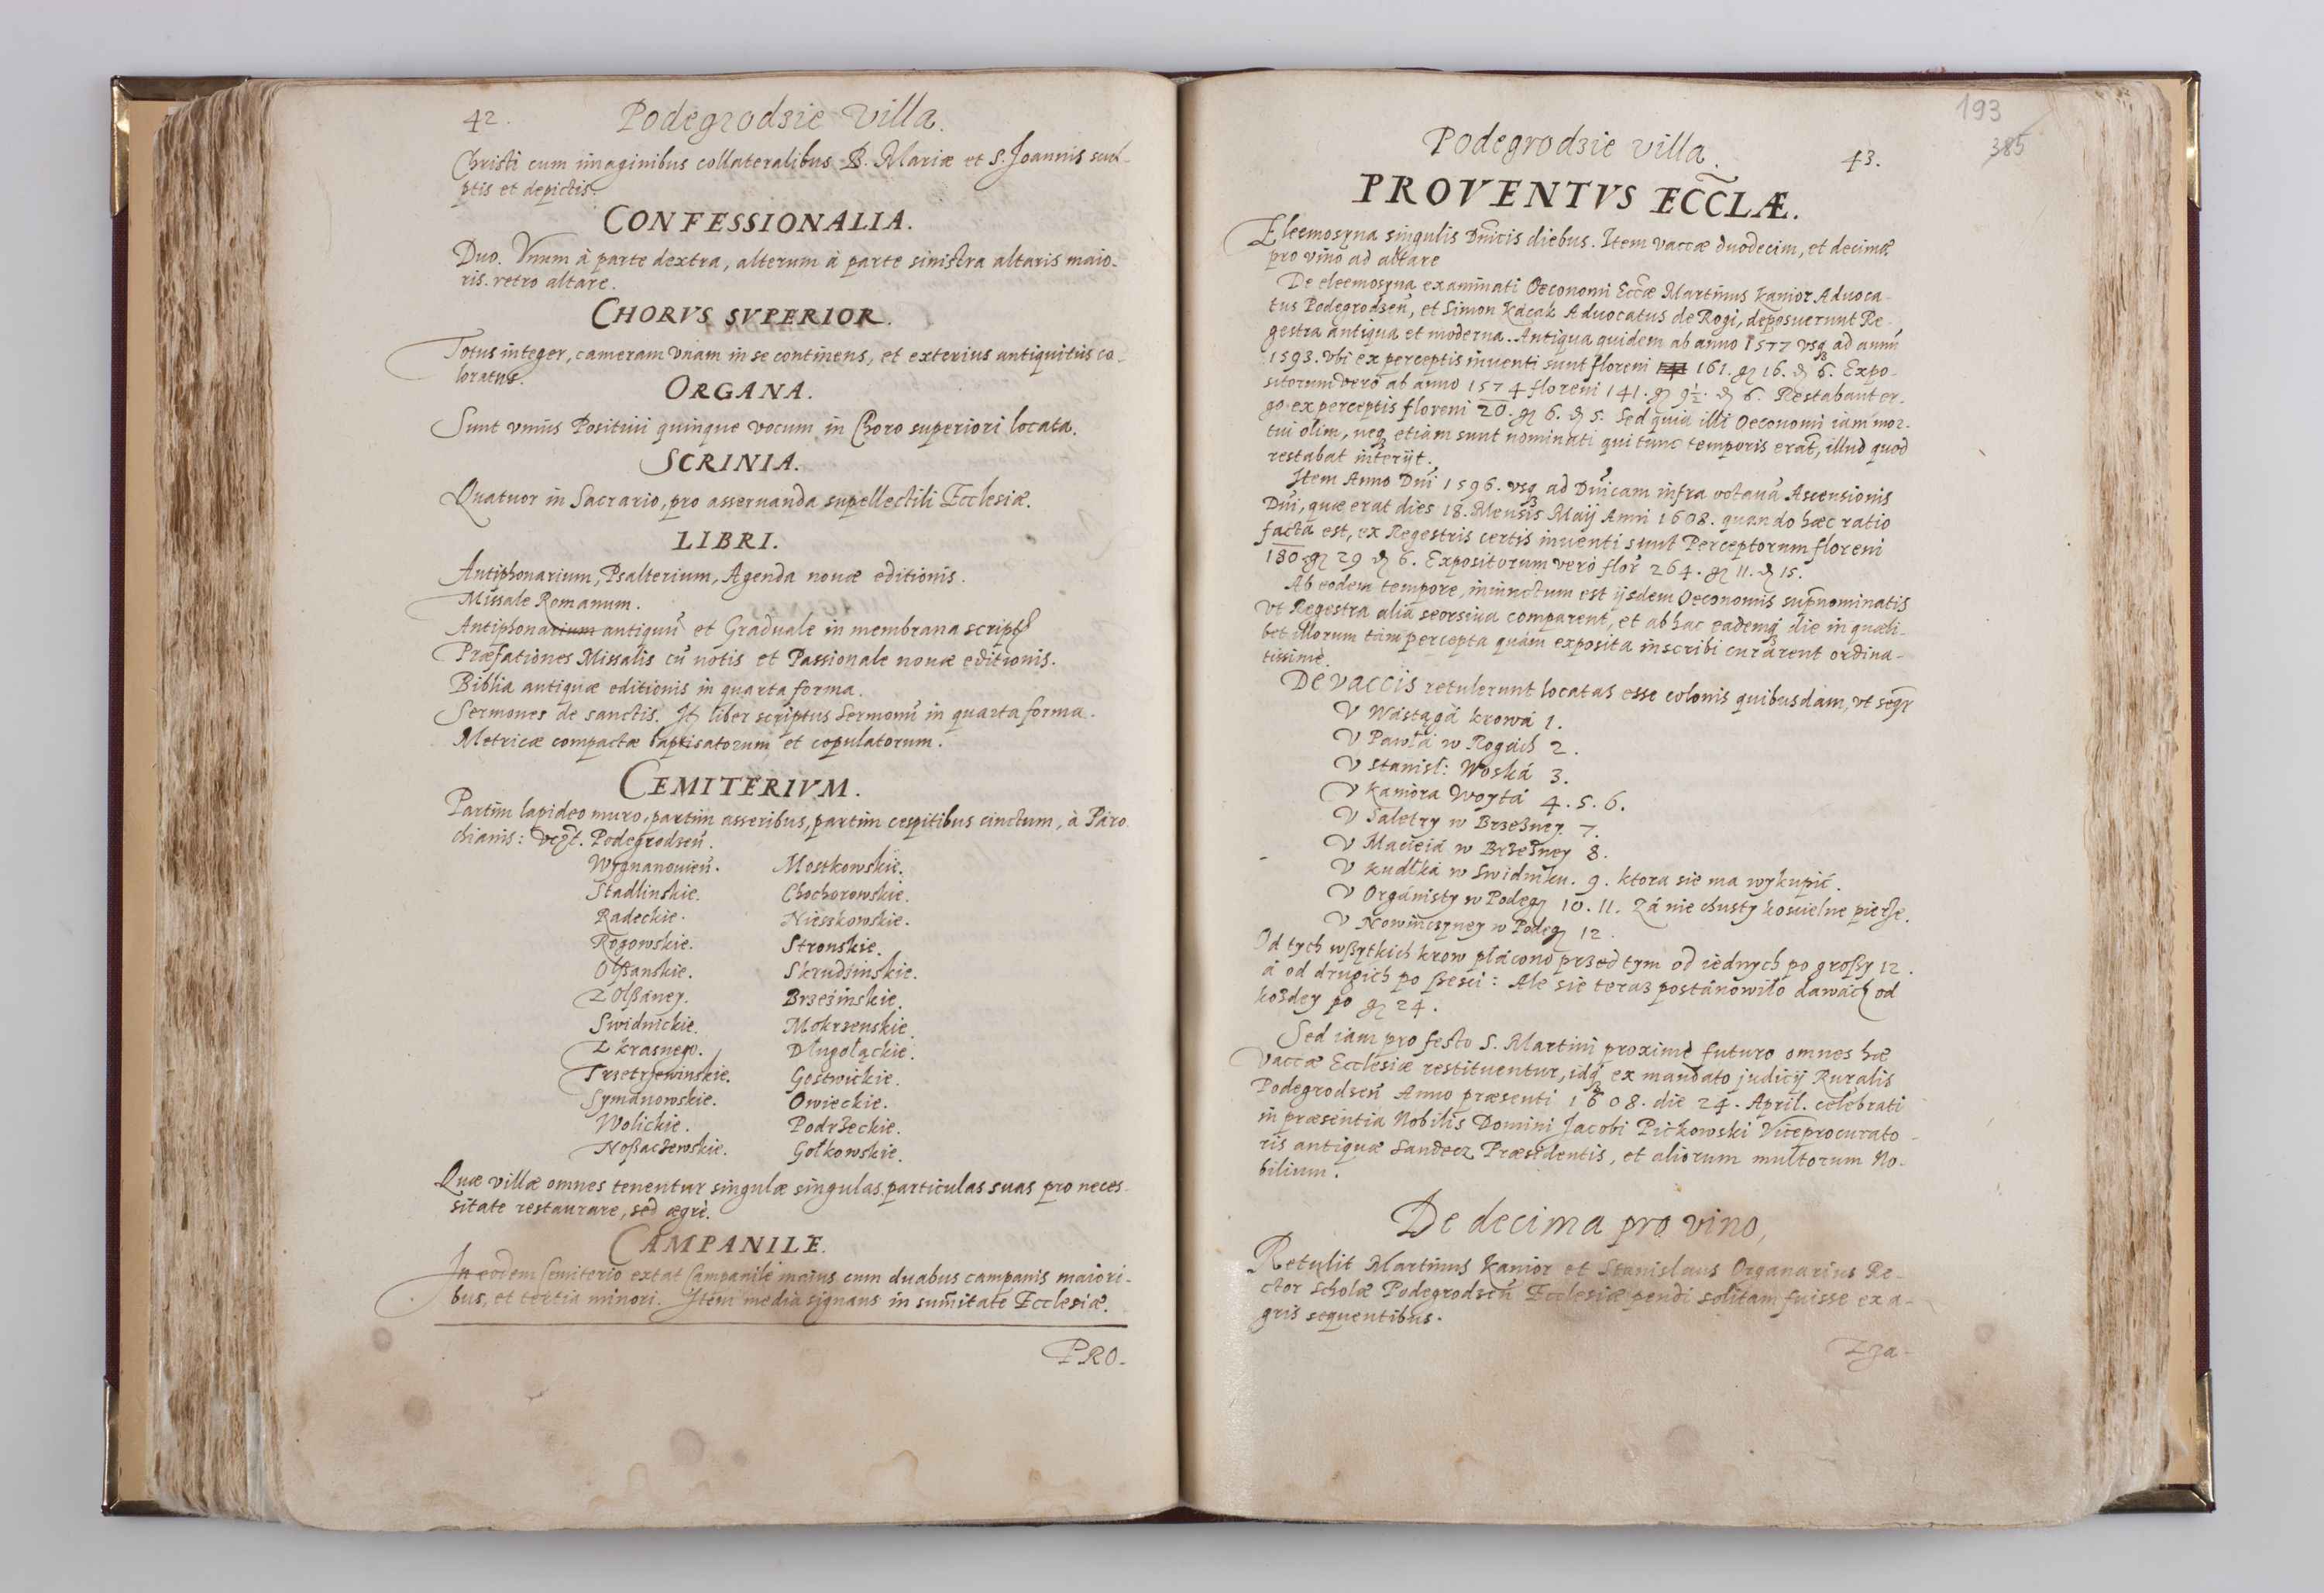 42.
Podegrodzie villa.
Christi cum imaginibus collateralibus B. Mariæ et S. Joannis scul-
ptis et depictis.
CONFESSIONALIA.
Duo. Vnum à parte dextra, alterum à parte sinistra altaris maio-
ris. retro altare.
CHORVS SVPERIOR.
Totus integer, cameram vnam in se continens, et exterius antiquitùs co-
loratus.
ORGANA.
Sunt vnius Positiui quinque vocum in Choro superiori locata.
SCRINIA.
Quatuor in Sacrario, pro asseruanda supellectili Ecclesiæ.
LIBRI.
Antiphonarium, Psalterium, Agenda nouæ editionis.
Missale Romanum.
Antiphonarium antiquũ et Graduale in membrana script
Præfationes Missalis cũ notis et Passionale nouæ editionis.
Biblia antiquæ editionis in quarta forma.
Sermones de sanctis. It liber scriptus Sermonũ in quarta forma.
Metricæ compactæ baptisatorum et copulatorum.
CEMITERIVM.
Partim lapideo muro, partim asseribus, partim cespitibus cinctum, à Paro
chianis: vczt. Podegrodzeñ.
Wygnanouieñ. Mostkowskie.
Stadlinskie. Chochorowskie.
Radeckie. Niesskowskie.
Rogowskie. Stronskie.
Olßanskie. Skrudzinskie.
Z Olßáney. Brzezinskie.
Swidnickie. Mokrzenskie.
Z krasnego. Długołąckie.
Trzetrzewinskie. Gostwickie.
Symanowskie. Owieckie.
Wolickie. Podrzeckie.
Noßaczewskie. Gołkowskie.
Quæ villæ omnes tenentur singulæ singulas particulas suas pro neces-
sitate restaurare, sed ægrè.
CAMPANILE.
In eodem Cemiterio extat Campanile maius cum duabus campanis maiori-
bus, et tertia minori. Item media signans in sum̃itate Ecclesiæ.
PRO-
193
385
Podegrodzie villa.
43.
PROVENTVS ECCLÆ.
Eleemosyna singulis Dñicis diebus. Item vaccæ duodecim, et decimæ
pro vino ad altare
De eleemosyna examinati Oeconomi Eccæ Martinus Kanior Aduoca-
tus Podegrodzeñ, et Simon Kácak Aduocatus de Rogi, deposuerunt Re-
gestra antiqua et moderna. Antiqua quidem ab anno 1577 vsq ad annũ
1593. vbi ex perceptis inuenti sunt floreni 161. gr 16. d 6. Expo-
sitorum verò ab anno 1574 floreni 141. gr 9½. d 6. Restabant er-
go ex perceptis floreni 20. gr 6. d 5. Sed quia illi Oeconomi iam mor-
tui olim, neq etiam sunt nominati qui tunc temporis erãt, illud quod
restabat interijt.
Item Anno Dñi 1596. vsq ad Dñicam infra octauã Ascensionis
Dñi, quæ erat dies 18. Mensis Maij Anni 1608. quando hæc ratio
facta est, ex Regestris certis inuenti sunt Perceptorum floreni
180 gr 29 d 6. Expositorum verò flor 264. gr 11. d 15.
Ab eodem tempore, iniunctum est ijsdem Oeconomis supnominatis
vt Regestra alia seorsiua comparent, et ab hac eademq die in quæli-
bet illorum tam percepta quàm exposita inscribi curarent ordina-
tissimè.
De vaccis retulerunt locatas esse colonis quibusdam, vt seqr
V Wástągá krowá 1.
V Pawłá w Rogách 2.
V Stanisł: Woská 3.
V Kaniora Woytá 4. 5. 6.
V Saletry w Brzezney. 7.
V Macieiá w Brzezney 8.
V Kudłká w Swidniku. 9. ktora sie ma wykupić.
V Orgánisty w Podegr 10. 11. Zá nie chusty kościelne pierze.
V Nowinczyney w Podegr 12.
Od tych wßytkich krow płácono przed tym od iednych po großy 12.
á od drugich po ßesci: Ale sie teraz postánowiło dawác od
kozdey po gr 24.
Sed iam pro festo S. Martini proximè futuro omnes hæ
vaccæ Ecclesiæ restituentur, idq ex mandato judicij Ruralis
Podegrodzeñ Anno præsenti 1608. die 24. April. celebrati
in præsentia Nobilis Domini Jacobi Pickowski Viceprocurato-
ris antiquæ Sandecz Præsidentis, et aliorum multorum No-
bilium.
De decima pro vino,
Retulit Martinus Kanior et Stanislaus Organarius Re-
ctor Scholæ Podegrodzeñ Ecclesiæ pendi solitam fuisse ex a-
gris sequentibus.